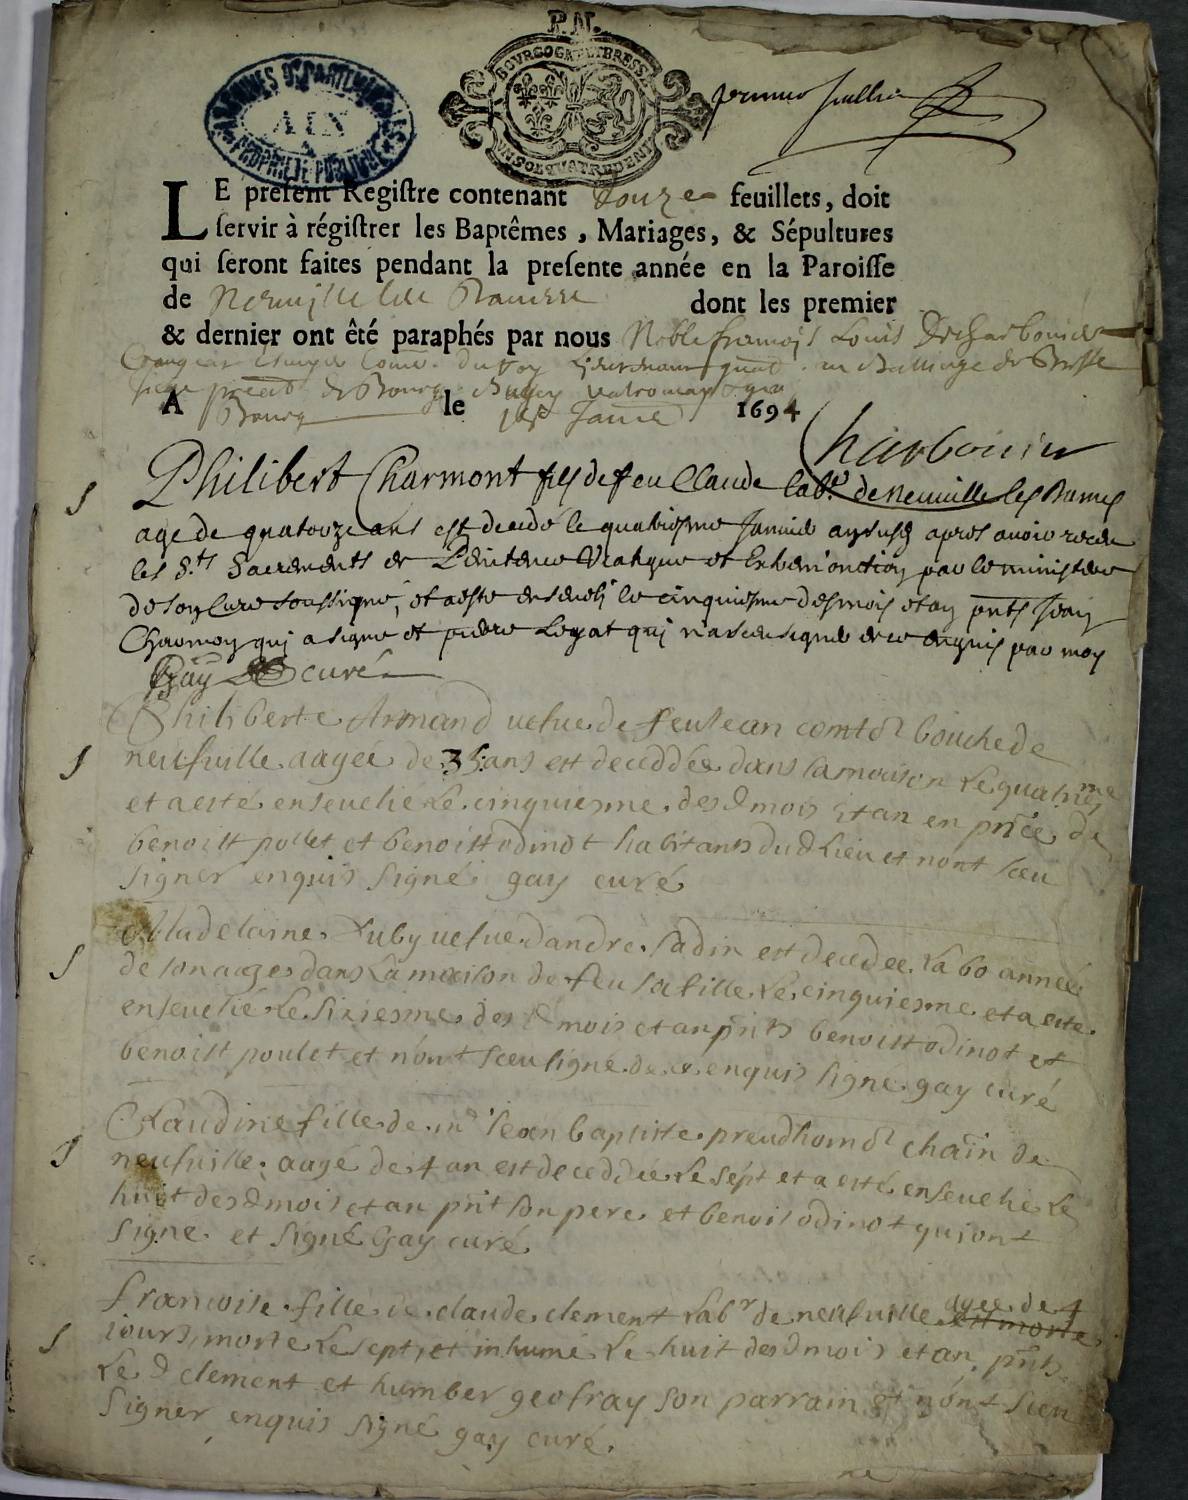 P.N.
BOURGOGNE ET BRESSE
UN SOL QUATRE DENI
ARCHIVES DEPARTEMENTALES
AIN
PROPRIETE PUBLIQUE
premier feuillet
LE present Registre contenant douze feuillets, doit
servir à régistrer les Baptêmes, Mariages, & Sépultures
qui seront faites pendant la presente année en la Paroisse
de Neufville les dont les premier
& dernier ont êté paraphés par nous Noble françois Louis Decharbonier
du Roy Lieutenant au Balliage de Bresse
de Bourg Bugey
A Bourg le Janvier 1694
Charbonier
Philibert Charmont fils de feu Claude lab.r de Neuville les Dames
age de quatorze ans est decede le quatriesme Janvier apres avoir receu
les S.ts Sacrements de Penitence Viatique et Extreme onction par le ministere
de son Curé soussigné, et a este enseveli le cinquiesme des mois et an pnts Jean
Charmon qui a signe et pierre Loyat qui n'a sceu signer de ce enquis par moy
Gay curé
Philiberte Armand vefve de feu Jean bouche de
neufville aageé de 35 ans est deceddée dans sa maison le quatriesme
et a esté ensevelie le cinquiesme des d mois et an en pnce de
benoist pollet et benoist odinot habitants dud lieu et nont sceu
signer enquis signé gay curé
Madelaine Luby vefve dandré Jadin est decedee la 60 année
de son aage dans la maison de feu sa fille le cinquiesme et a esté
ensevelie le siziesme des d mois et an pnts benoist odinot et
benoist poulet et n'ont sceu signé de ce enquis signé gay curé
Claudine fille de m Jean baptiste preudhom chain de
neufville aagé de 4 an est deceddée le sept et a esté ensevelie le
huit des d mois et an pnt son pere et benois odinot qui ont
signe et signé Gay curé
francoise fille de claude clement Lab.r de neufville agee de 4
est morte
iours morte le sept, et inhumé le huit des d mois et an pnts
Le d clement et humber geofray son parrain et n'ont sceu
signer enquis signé gay curé.